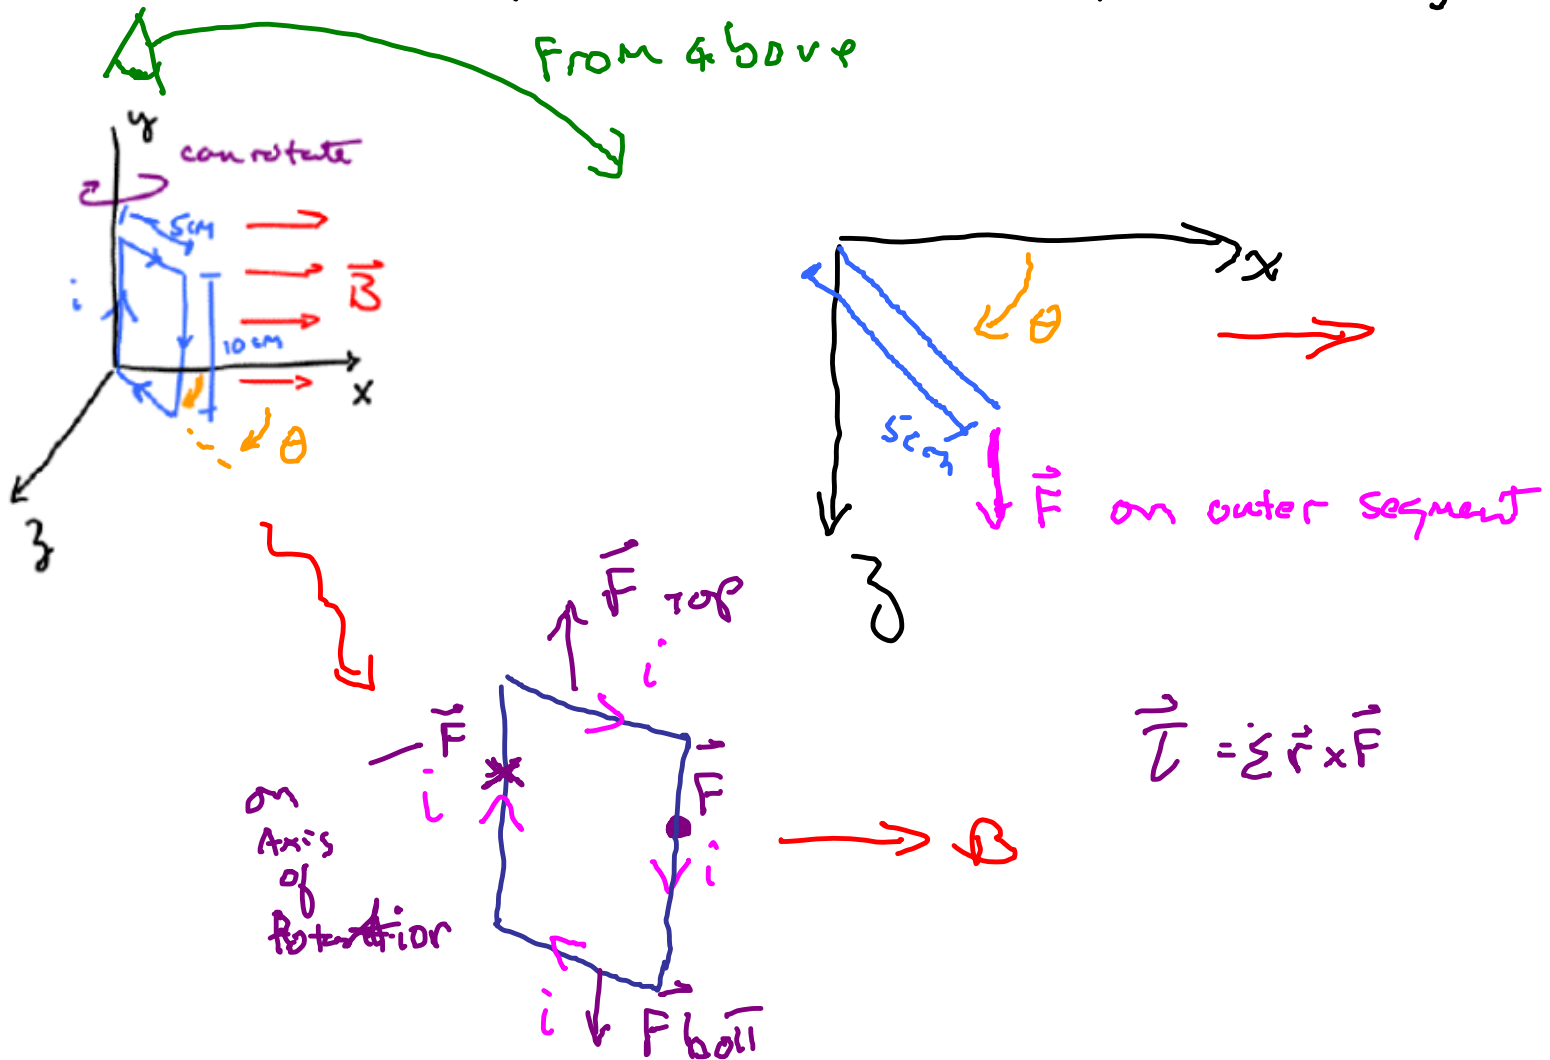 From above
y
can rotate
5cm
i
B
10cm
x
θ
z
x
θ
5cm
F on outer segment
z
F TOP
i
F
i
on
Axis
of
Rotation
F
i
B
i
F bott
τ = Σ r x F